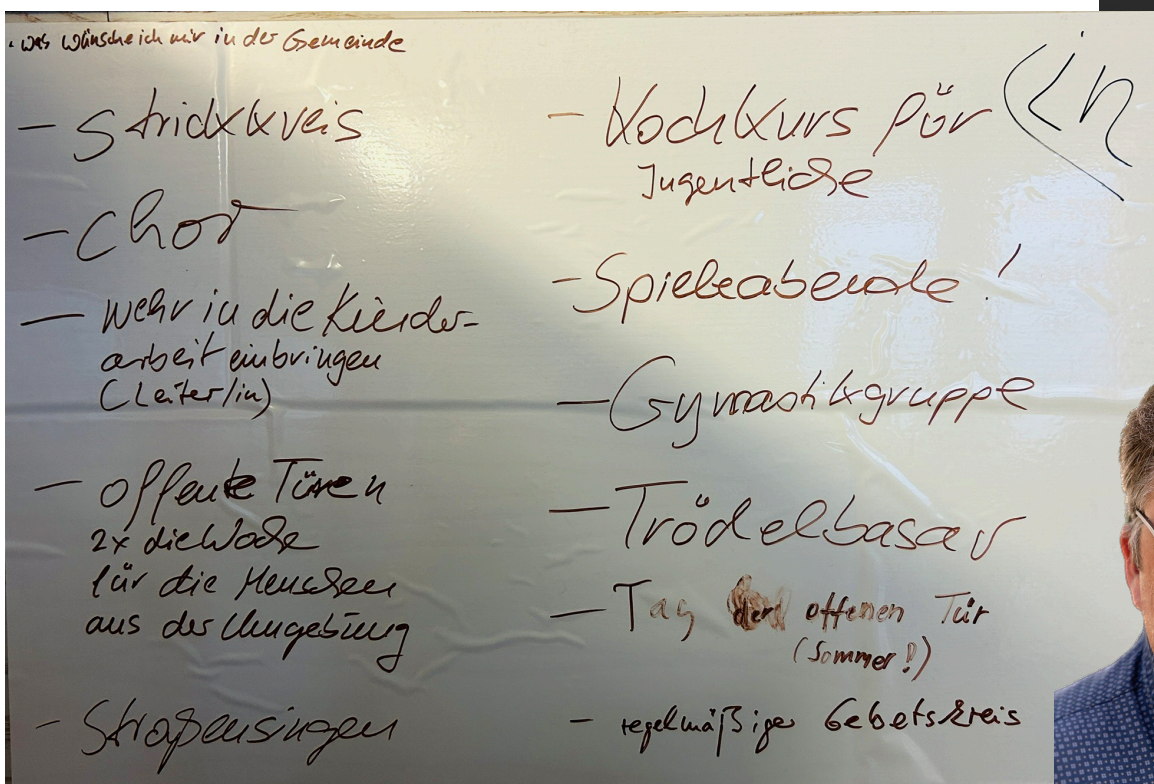 . was wünsche ich mir in der Gemeinde
- Strickkreis
- Chor
- mehr in die Kinder-
arbeit einbringen
(Leiter/in)
- offene Türen
2x die Woche
für die Menschen
aus der Umgebung
- Straßensingen
- Kochkurs für
Jugentliche
- Spieleabende!
- Gymastikgruppe
- Trödelbasar
- Tag der offenen Tür
(Sommer!)
- regelmäßiger Gebetskreis